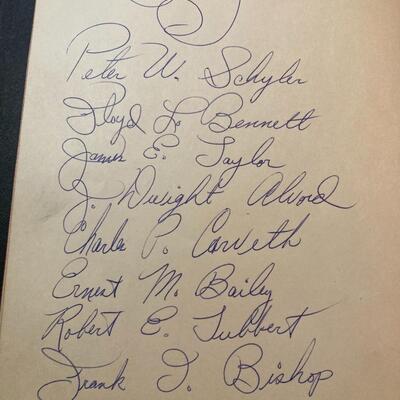 Peter W. Schyler
Floyd L. Bennett
James E. Taylor
J. Dwight Alvord
Charles P. Carveth
Ernest M. Bailey
Robert E. Tubbert
Frank J. Bishop